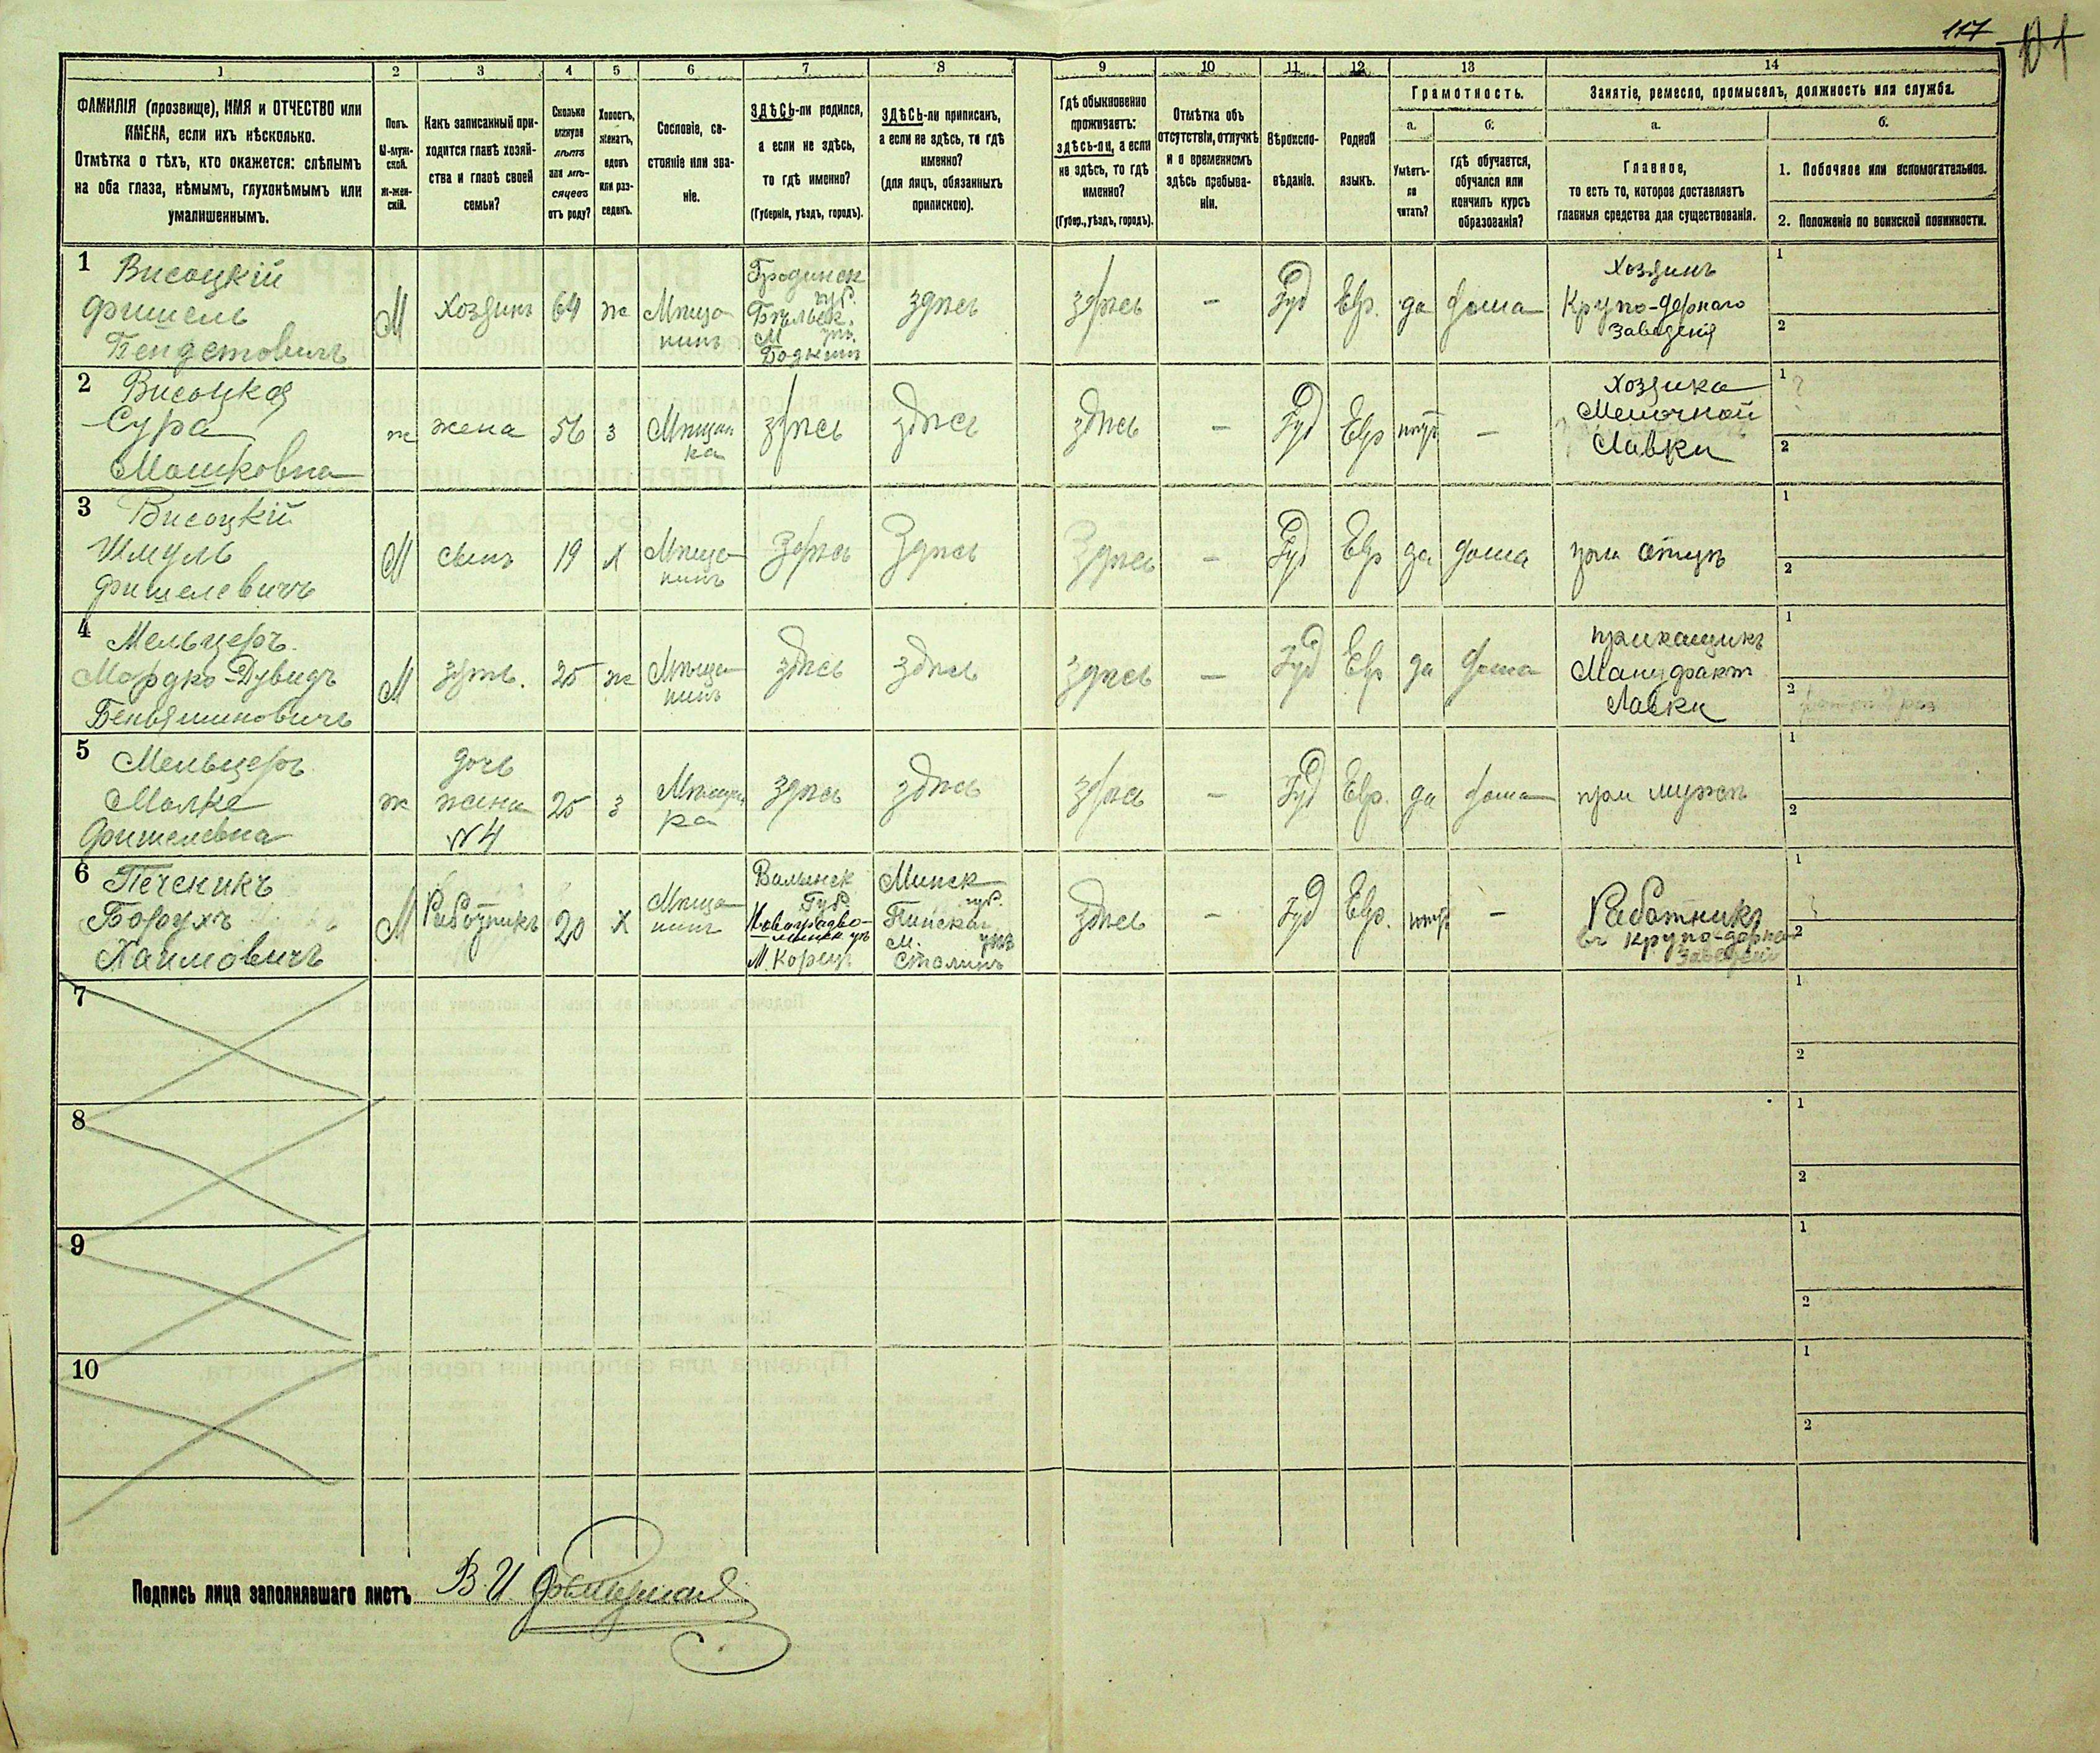 117
1
2
3
4
5
6
7
8
9
10
11
12
13
14
ФАМИЛІЯ (прозвище), ИМЯ и ОТЧЕСТВО или
ИМЕНА, если ихъ нѣсколько.
Отмѣтка о тѣхъ, кто окажется: слѣпымъ
на оба глаза, нѣмымъ, глухонѣмымъ или
умалишеннымъ.
Полъ.
М-муж-
ской.
ж-жен-
скій.
Какъ записанный при-
ходится главѣ хозяй-
ства и главѣ своей
семьи?
Сколько
минуло
лѣтъ
или мѣ-
сяцевъ
отъ роду?
Холостъ,
женатъ,
вдовъ
или раз-
веденъ.
Сословіе, со-
стояніе или зва-
ніе.
ЗДѢСЬ-ли родился,
а если не здѣсь,
то гдѣ именно?
(Губернія, уѣздъ, городъ).
ЗДѢСЬ-ли приписанъ,
а если не здѣсь, то гдѣ
именно?
(для лицъ, обязанныхъ
припискою).
Гдѣ обыкновенно
проживаетъ:
здѣсь-ли, а если
не здѣсь, то гдѣ
именно?
(Губер., уѣздъ, городъ).
Отмѣтка объ
отсутствіи, отлучкѣ
и о временномъ
здѣсь пребыва-
ніи.
Вѣроиспо-
вѣданіе.
Родной
языкъ.
Грамотность.
а.
Умѣетъ-
ли
читать?
б.
гдѣ обучается,
обучался или
кончилъ курсъ
образованія?
Занятіе, ремесло, промыселъ, должность или служба.
а.
Главное,
то есть то, которое доставляетъ
главныя средства для существованія.
б.
1. Побочное или вспомогательное.
2. Положеніе по воинской повинности.
1 Висоцкій
Фишель
Бендетовичъ
М
Хозяинъ
64
ж
Мѣща
нинъ
Гродненск
губ.
Бѣльск.
уѣ.
М
здѣсь
здѣсь
-
Іуд
Евр.
да
дома
Хозяинъ
Крупо-дернаго
Заведенія
1
2
2 Висоцкая
Сура
Мошковна
ж
жена
56
з
Мѣщан
ка
здѣсь
здѣсь
здѣсь
-
Іуд
Евр
нѣтъ
-
Хозяйка
Мелочной
Лавки
1
2
3 Висоцкій
Шмуль
Фишелевичъ
М
сынъ
19
х
Мѣща
нинъ
Здѣсь
Здѣсь
Здѣсь
-
Іуд
Евр
да
дома
при отцѣ
1
2
4 Мельцеръ
Мордко-Дувидъ
Беньяминовичъ
М
зять.
25
ж
Мѣща
нинъ
здѣсь
здѣсь
здѣсь
-
Іуд
Евр
да
дома
прикащикъ
Мануфакт
Лавки
1
2
5 Мельцеръ
Малке
Фишелевна
ж
дочь
жена
№ 4
25
з
Мѣщан
ка
здѣсь
здѣсь
здѣсь
-
Іуд
Евр.
да
дома
при мужѣ
1
2
6 Печеникъ
Борухъ
Хаимовичъ
М
Работникъ
20
х
Мѣща
нинъ
Волынск
Губ.
Новоградво-
лынск уѣ
М. Корец
Минск
губ.
Пинскаг
уѣз
м.
Столинъ
здѣсь
-
Іуд
Евр.
нѣтъ
-
Работникъ
въ крупо-дерно
Заведеніи
1
2
7
1
2
8
1
2
9
1
2
10
1
2
Подпись лица заполнявшаго листъ В. И.